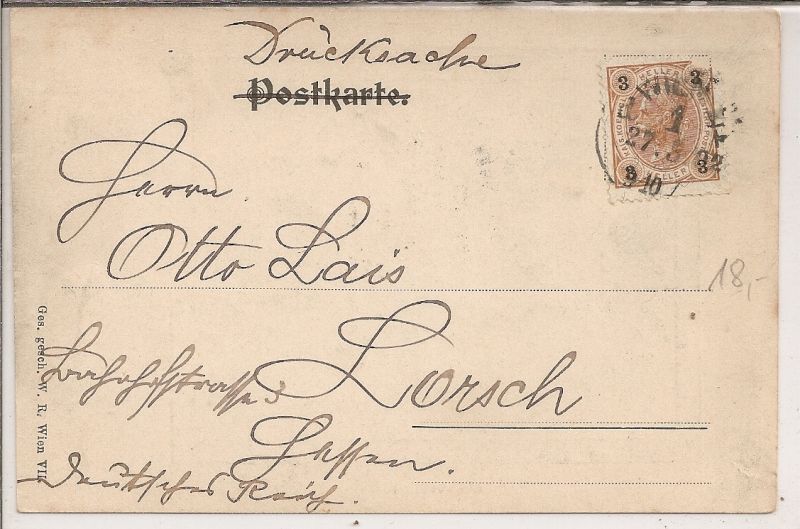 Drucksache
Postkarte.
3 HELLER 3
3 HELLER 3
1
27.
9 10
Herrn
Otto Lais
18,-
Lorsch
Bahnhofstrasse
Hessen.
Deutsches Reich.
Ges. gesch. W. R. Wien VII